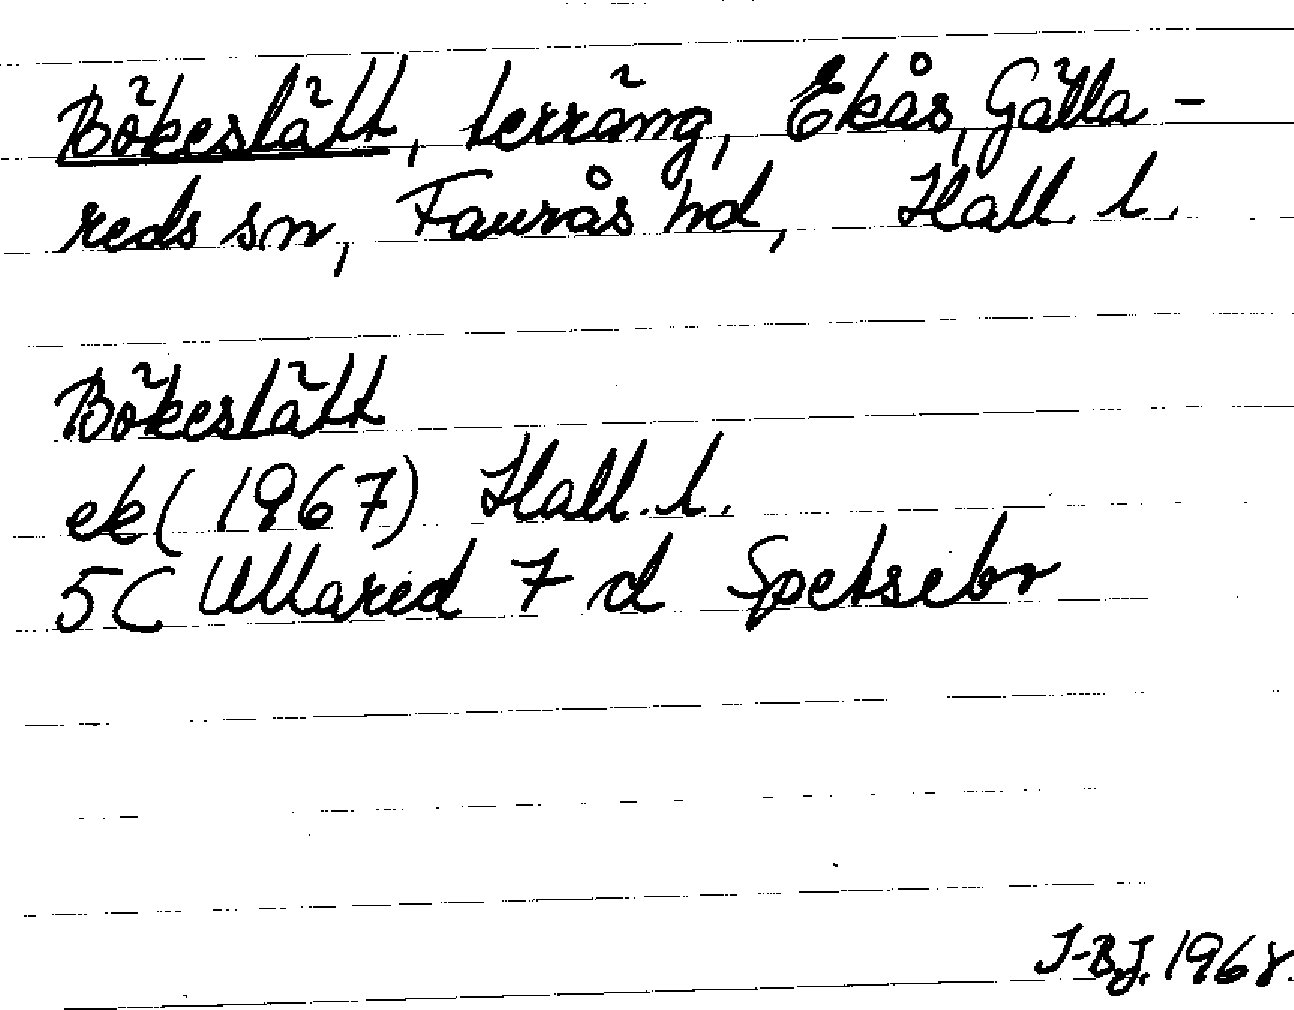 Bökeslätt, terräng, Ekås, Gälla-
reds sn, Faurås hd, Hall. l.
Bökeslätt
ek (1967) Hall. l.
5C Ullared 7 d Spetsebo
I-B.J. 1968.